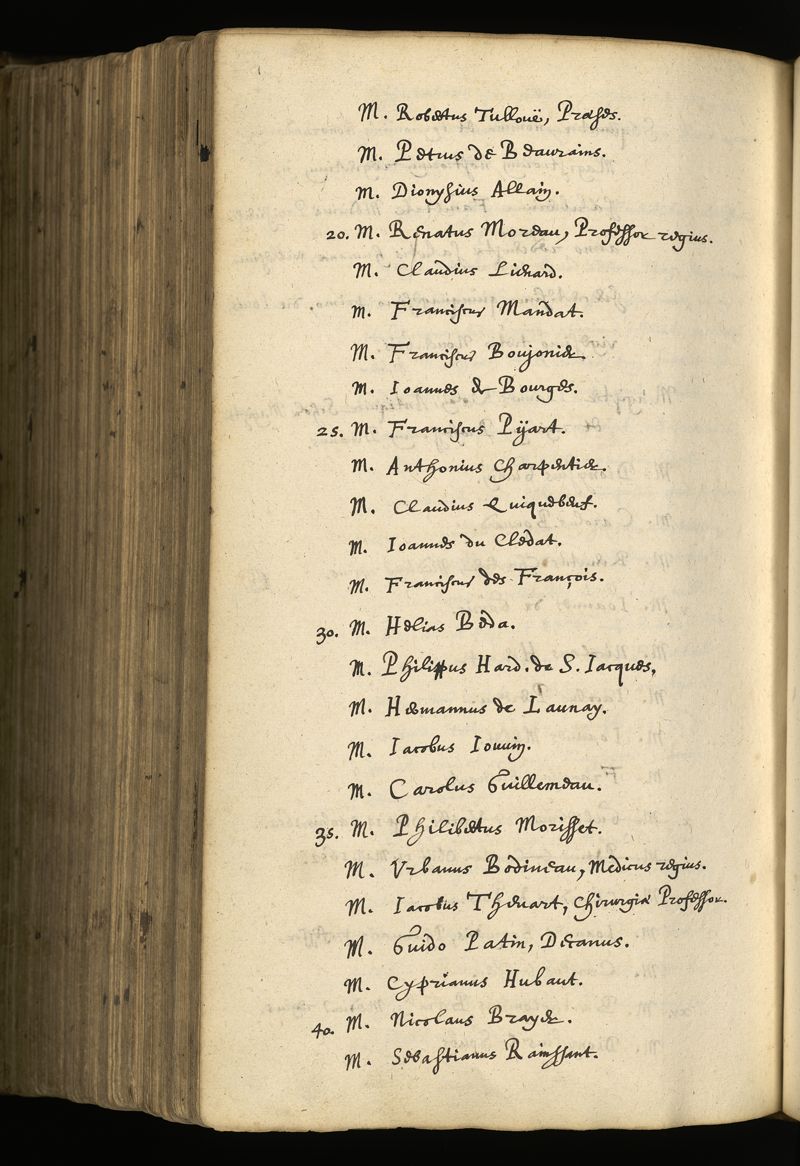 M. Robertus Tulloüë, Præses.
M. Petrus de Beaurains.
M. Dionysius Allain.
20. M. Renatus Moreau, Professor regius.
M. Claudius Liénard.
M. Franciscus Mandat.
M. Franciscus Boujonier.
M. Ioannes de Bourges.
25. M. Franciscus Pijart.
M. Anthonius Charpentier.
M. Claudius Quiquebeuf.
M. Ioannes du Clédat.
M. Franciscus des François.
30. M. Helias Béda.
M. Philippus Hard. de S. Iacques,
M. Hermannus de Launay.
M. Iacobus Iouvin.
M. Carolus Guillemeau.
35. M. Philibertus Morisset.
M. Urbanus Bodineau, Medicus regius.
M. Iacobus Thévart, Chirurgiæ Professor.
M. Guido Patin, Decanus.
M. Cyprianus Hubaut.
40. M. Nicolaus Brayer.
M. Sebastianus Rainssant.